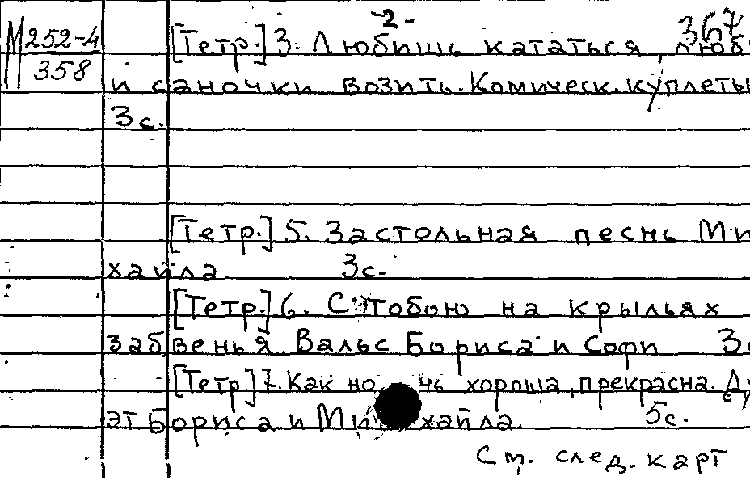 -2-
367
М 252-4
358
[Тетр.] 3. Любишь кататься, люби
и саночки возить. Комическ. куплеты
3с.
[Тетр.] 5. Застольная песнь Ми
хайла 3с.
[Тетр.] 6. С тобою на крыльях
забвенья Вальс Бориса и Софи 3с
[Тетр.] 7. Как но чь хороша, прекрасна. Ду
эт Бориса и Михайла. 5с.
См. след. карт